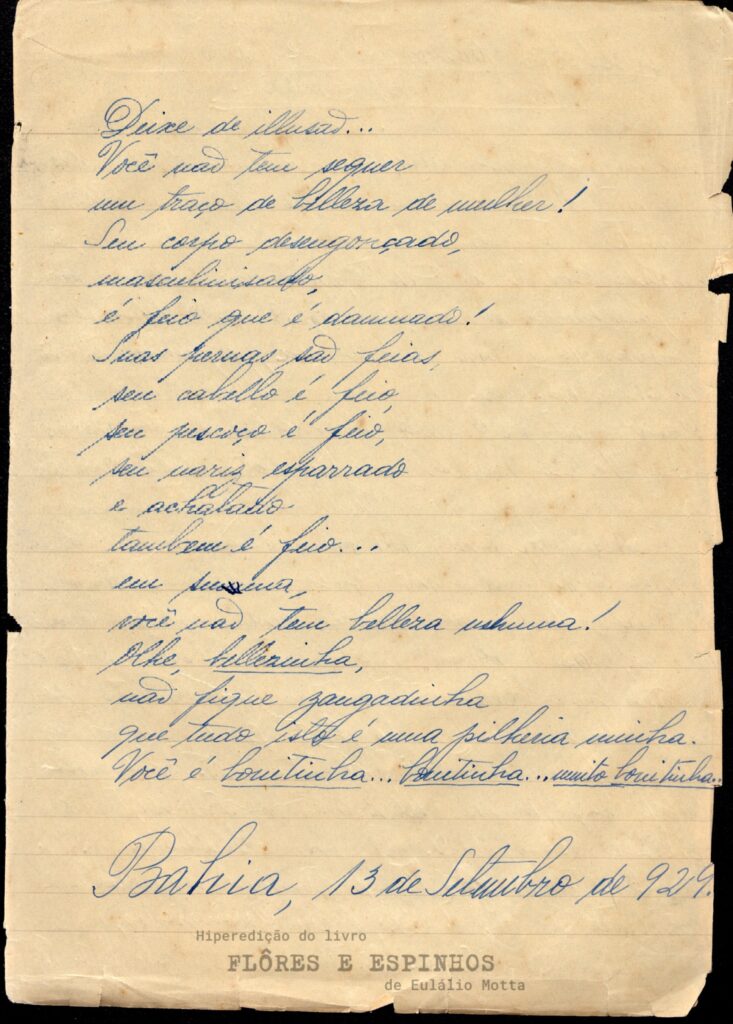 Deixe de illusaõ...
Você naõ tem sequer
um traço de belleza de mulher!
Seu corpo desengonçado,
masculinisado,
é feio que é damnado!
Suas pernas saõ feias,
seu cabello é feio,
seu pescoço é feio,
seu nariz esparrado
e achatado
tambem é feio...
em summa,
você naõ tem belleza nehuma!
Olhe, bellezinha,
naõ fique zangadinha
que tudo isto é uma pilheria minha.
Você é bonitinha... bonitinha... muito bonitinha...
Bahia, 13 de Setembro de 929.
Hiperedição do livro
FLÔRES E ESPINHOS
de Eulálio Motta